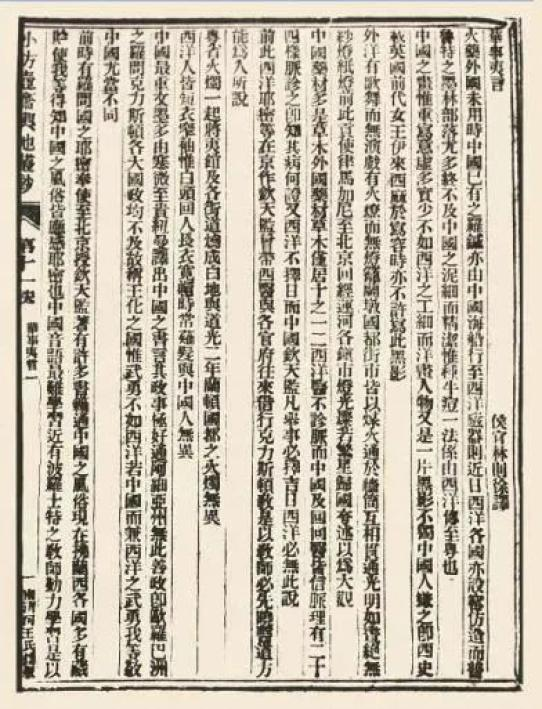 華事夷言
侯官林則徐譯
火藥外國未用時中國已有之羅鍼亦由中國海船行至西洋磁器則近日西洋各國亦設窰仿造而
特之墨林部落尤多終不及中國之泥細而精潔惟種牛痘一法係由西洋傳至粵也
中國之畫惟重寫意虛多實少不如西洋之工細而洋畫人物又是一片黑影不獨中國人嫌之即西史
載英國前代女王伊來西麻於寫容時亦不許寫此黑影
外洋有歌舞而無演戲有火燎而無燈籠蘭墩國都街市皆以煤火通於牆筒互相貫通光明如晝絕無
紗燈紙燈前此貢使律馬加尼至北京回經運河各鎮市燈光燦若繁星歸國夸述以為大觀
中國藥材多是草木外國藥材草木僅居十之一二西洋醫不診脈而中國及回回醫皆信脈理有二十
四樣脈診之即知其病何證又西洋不擇日而中國欽天監凡舉事必擇吉日西洋必無此說
前此西洋耶密等在京作欽天監曾帶西醫與各官府往來借行克力斯頓教是以教師必先曉醫道方
能為人所說
粵省火燭一起將夷館及各街道燒成白地與道光二年蘭頓國都之火燭無異
西洋人皆短衣窄袖惟白頭回人長衣寬袖時常薙髮與中國人無異
中國最重女墨多由寒微至貴紐曼譯出中國之書言其政事極好通阿細亞州無此善政即歐羅巴洲
之羅問克力斯頓各大國政均不及故稱王化之國惟武勇不如西洋若中國而兼西洋之武勇我等敘
中國尤當不同
前時有羅問國之耶密奉使至北京授欽天監著有許多書輯過中國之風俗現在拂蘭西各國多有
貯使我等得知中國之風俗皆應感耶密也中國音語最難學習近有波羅士特之教師勤力學習是以
小方壺齋輿地叢鈔
第十一帙
華事夷言
一